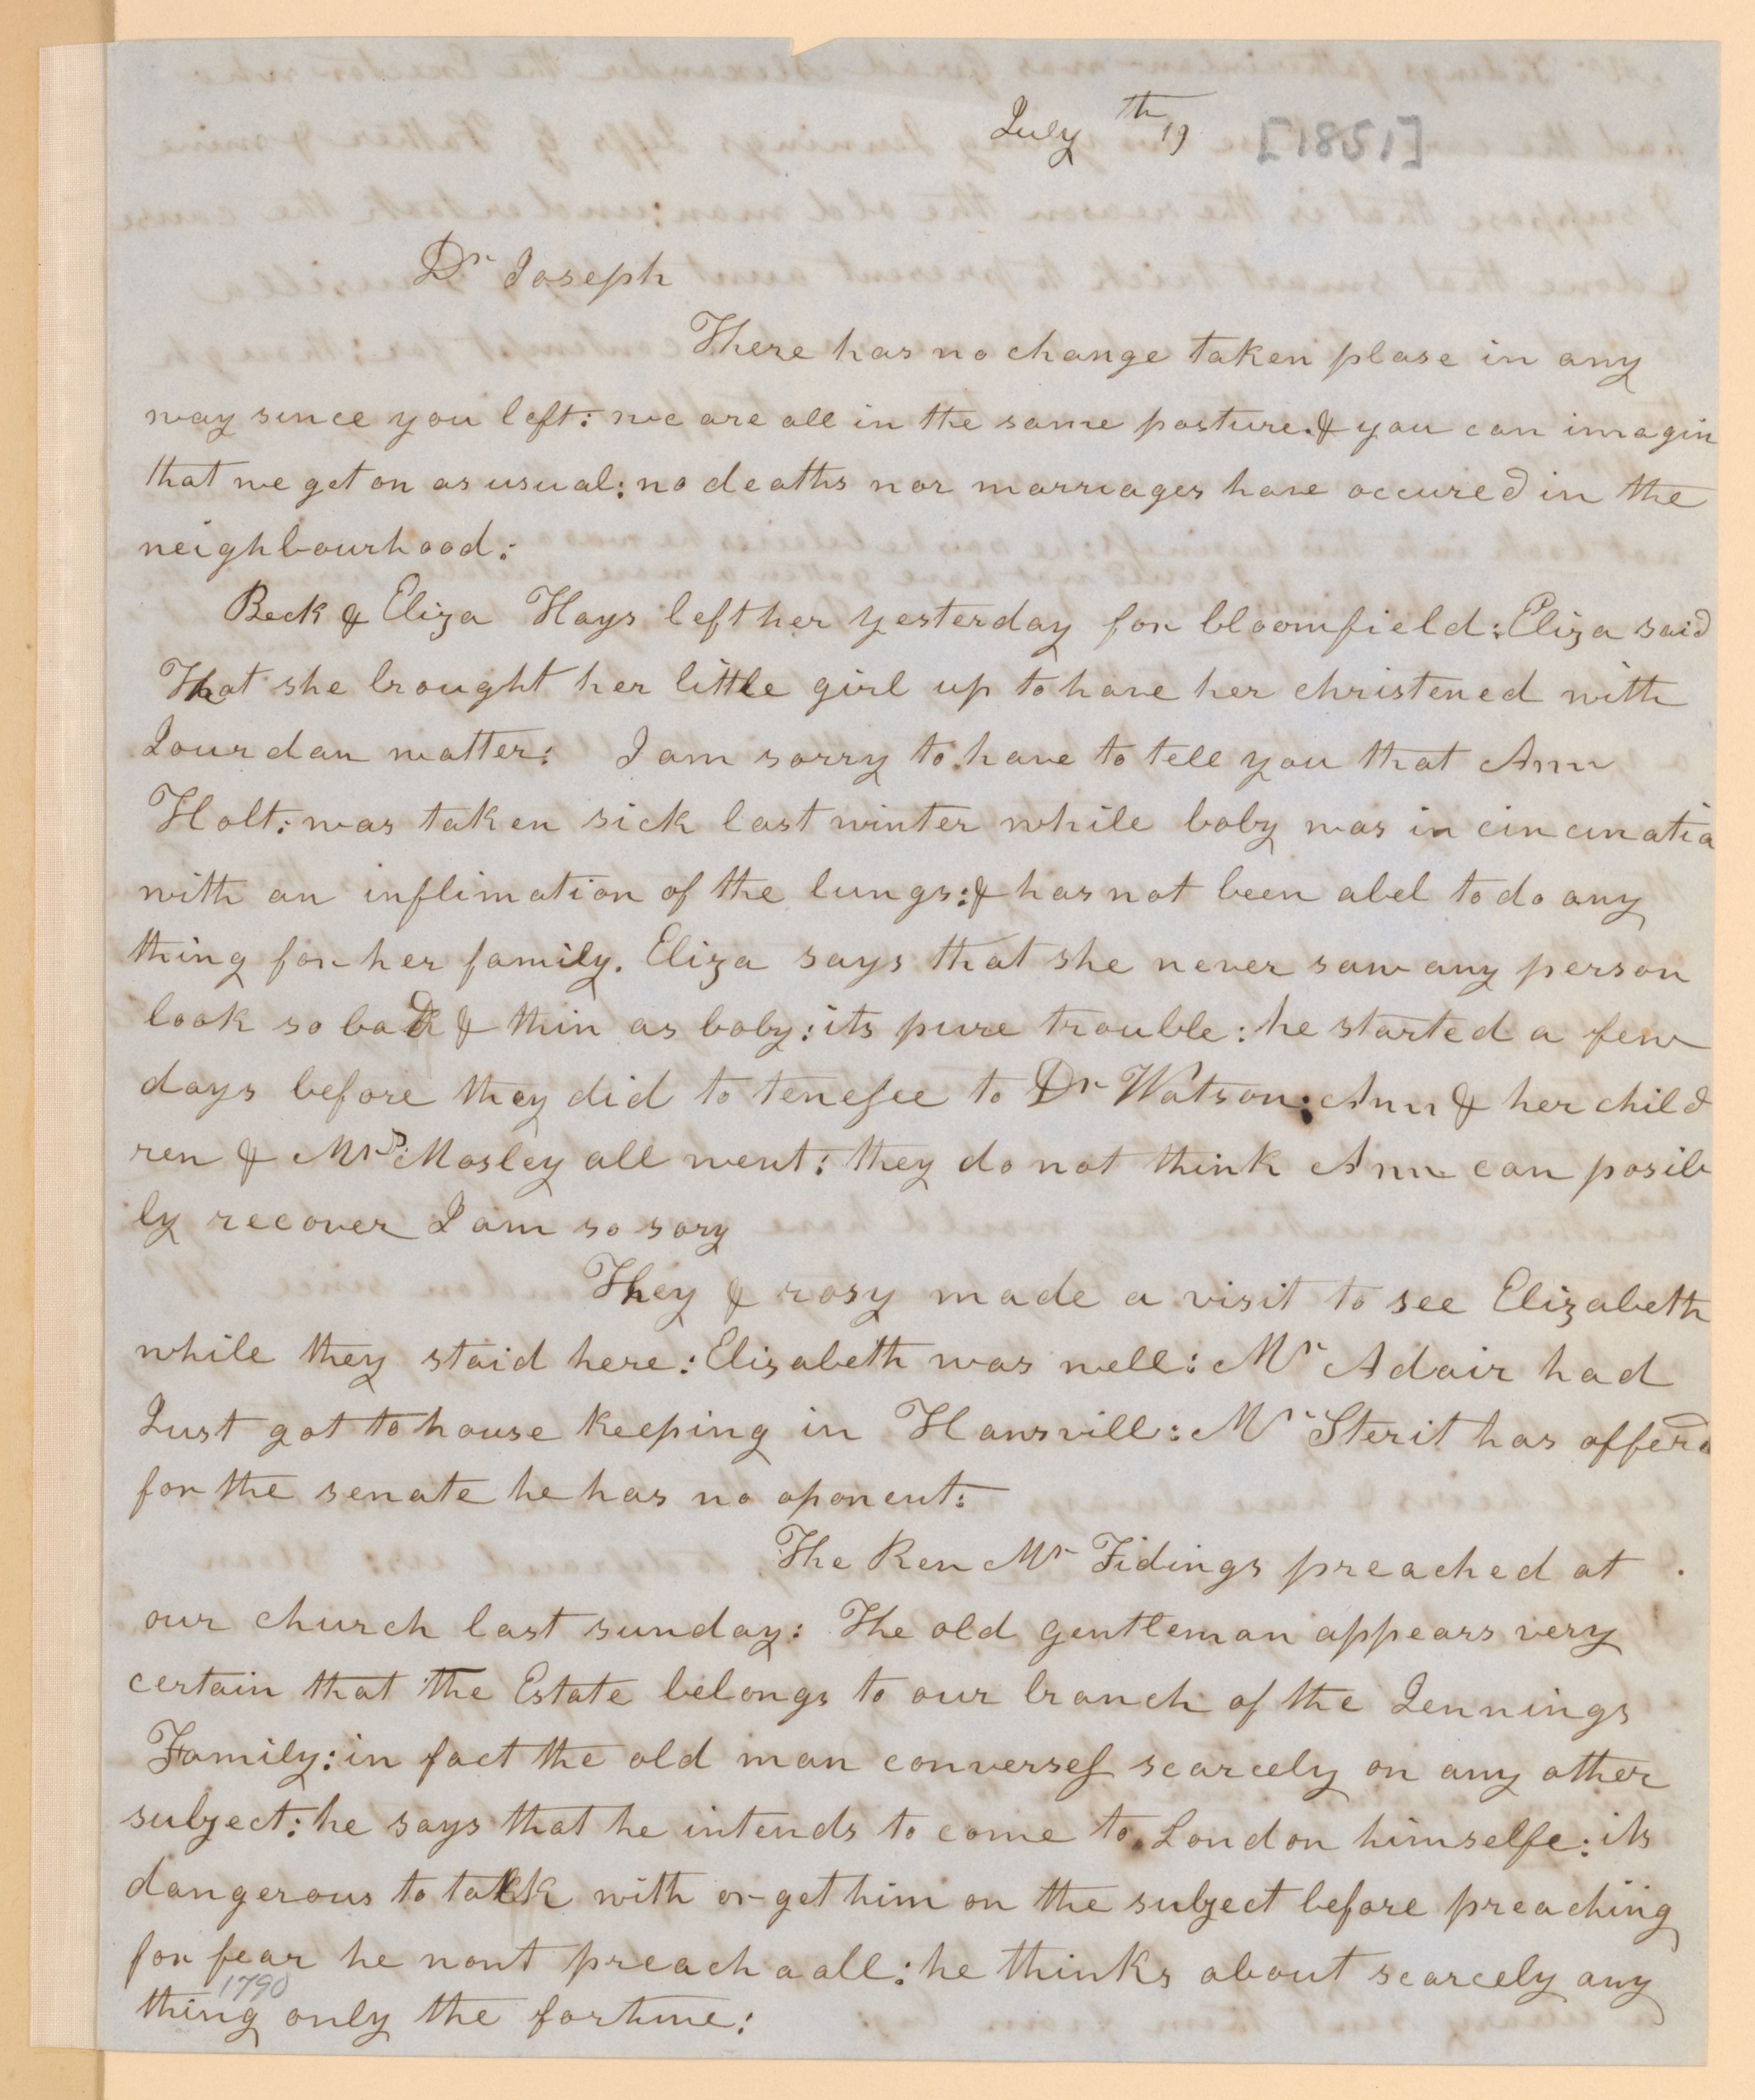 July 19th [1851]
Dr Joseph
There has no change taken plase in any
way since you left: we are all in the same posture. & you can imagin
that we get on as usual: no deaths nor marriages have occured in the
neighbourhood:
Beck & Eliza Hays left her yesterday for bloomfield: Eliza said
That she brought her little girl up to have her christened with
Jourdan watter: I am sorry to have to tell you that Ann
Holt: was taken sick last winter while boby was in cincinatia
with an inflimation of the lungs: & has not been abel to do any
thing for her family. Eliza says that she never saw any person
look so bad & thin as boby: its pure trouble: he started a few
days before they did to tenesee to Dr Watson: Ann & her child
ren & Mrs Mosley all went: they do not think Ann can posib
ly recover I am so sory
They & rosy made a visit to see Elizabeth
while they staid here: Elizabeth was well: Mr Adair had
Just got to house keeping in Hawsvill: Mr Sterit has offerd
for the senate he has no oponent:
The Rev Mr Tidings preached at
our church last sunday: The old gentleman appears very
certain that the Estate belongs to our branch of the Jennings
Family: in fact the old man converses scarcely on any other
subject: he says that he intends to come to London himselfe: its
dangerous to talk with or get him on the subject before preaching
for fear he wont preach a all: he thinks about scarcely any
1790
thing only the fortune: